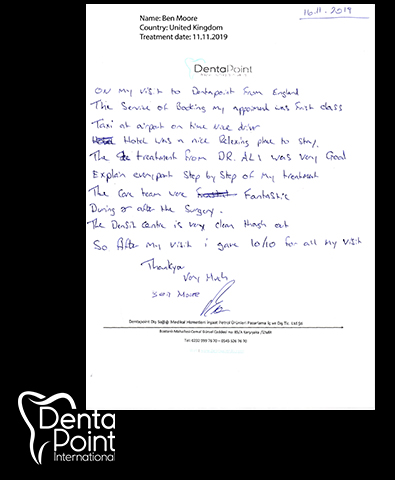 Name: Ben Moore
Country: United Kingdom
Treatment date: 11.11.2019
16.11.2019
DentaPoint
ON MY visit to Dentapoint From England
The Service of Booking My appointment was First class
Taxi at airport on time nice driver
Hotel was a nice Relaxing place to stay.
The treatment from DR. ALI was very Good
Explain every part Step by Step of my treatment
The Care team were Fantastic
During or after the Surgery.
The Dentist Centre is very clean through out
So After my visit i gave 10/10 for all my visit
Thankyou
Very Much
Ben Moore
Dentapoint Diş Sağlığı Medikal Hizmetleri İnşaat Petrol Ürünleri Pazarlama İç ve Dış Tic. Ltd Şti
Bostanlı Mahallesi Cemal Gürsel Caddesi no: Karşıyaka / İZMİR
Tel: 0232 999 76 70 - 0549 326 76 70
Denta
Point
International